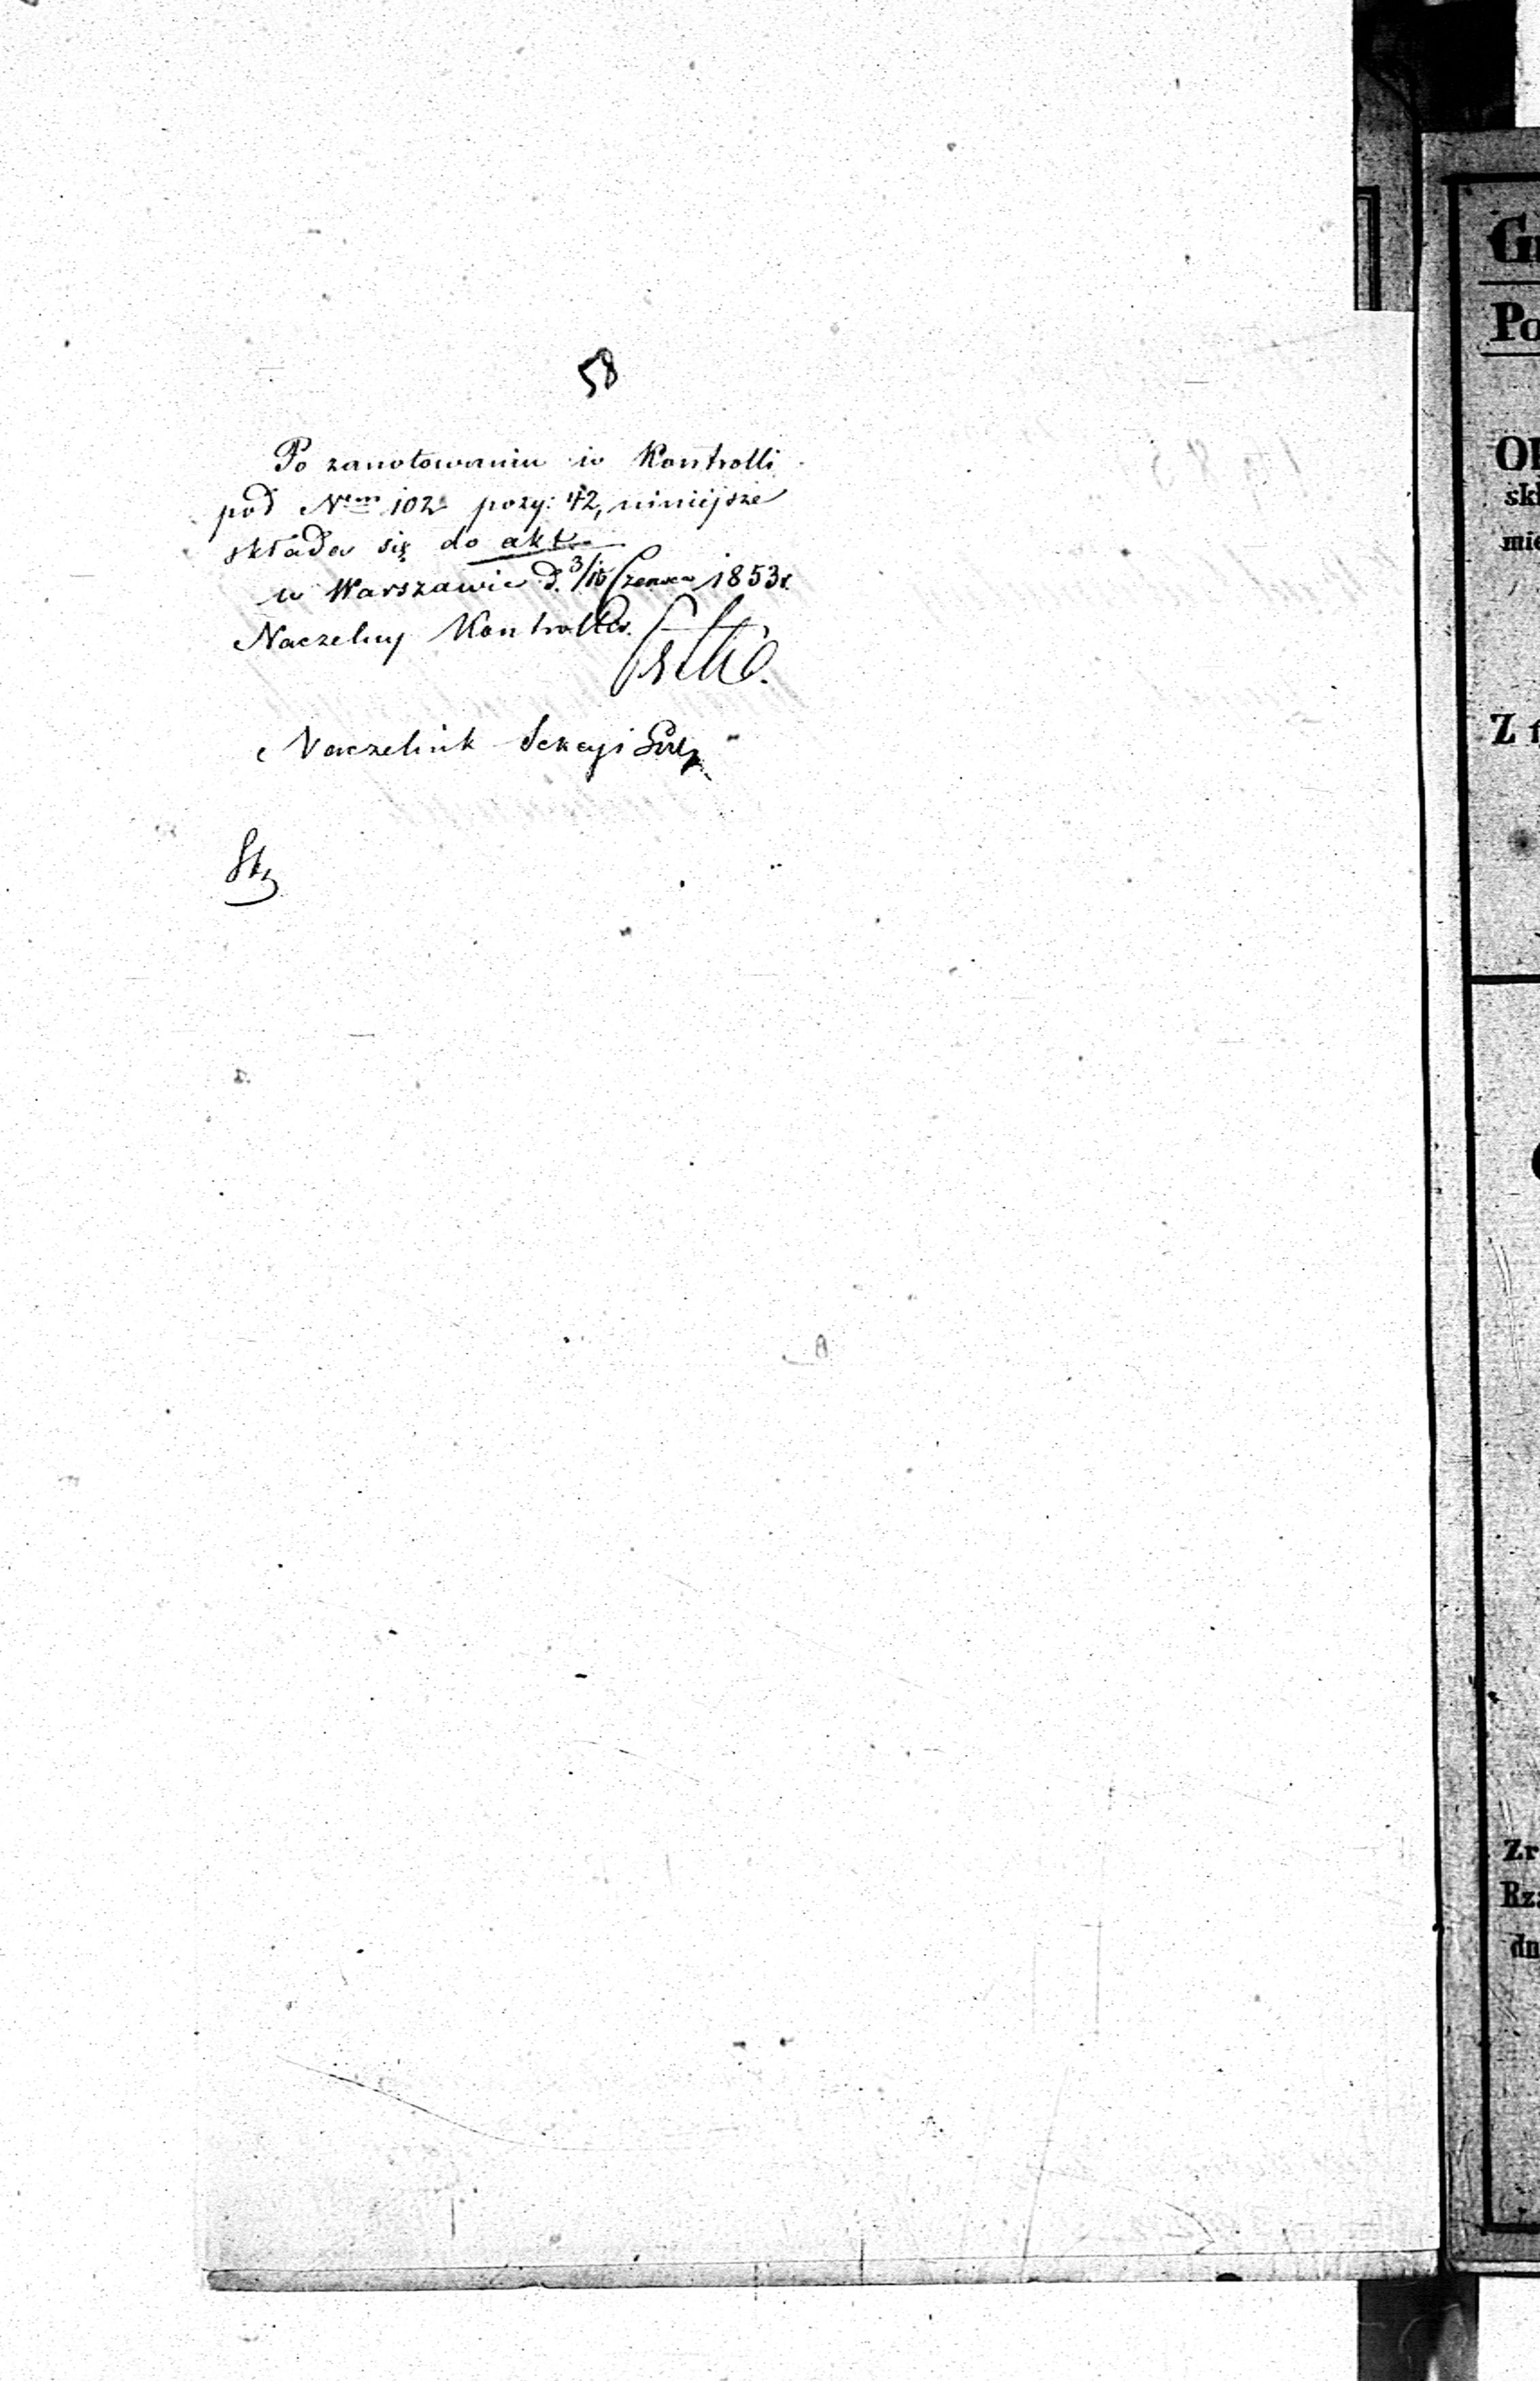 58
Po zanotowaniu w Kontrolli
pod Nem 102 pozy: 42, niniejsze
składa się do akt
w Warszawie d. 3/15 Czerwca 1853 r.
Naczelny Kontroller
Naczelnik Sekcyi
Po
Z
Zr
dn